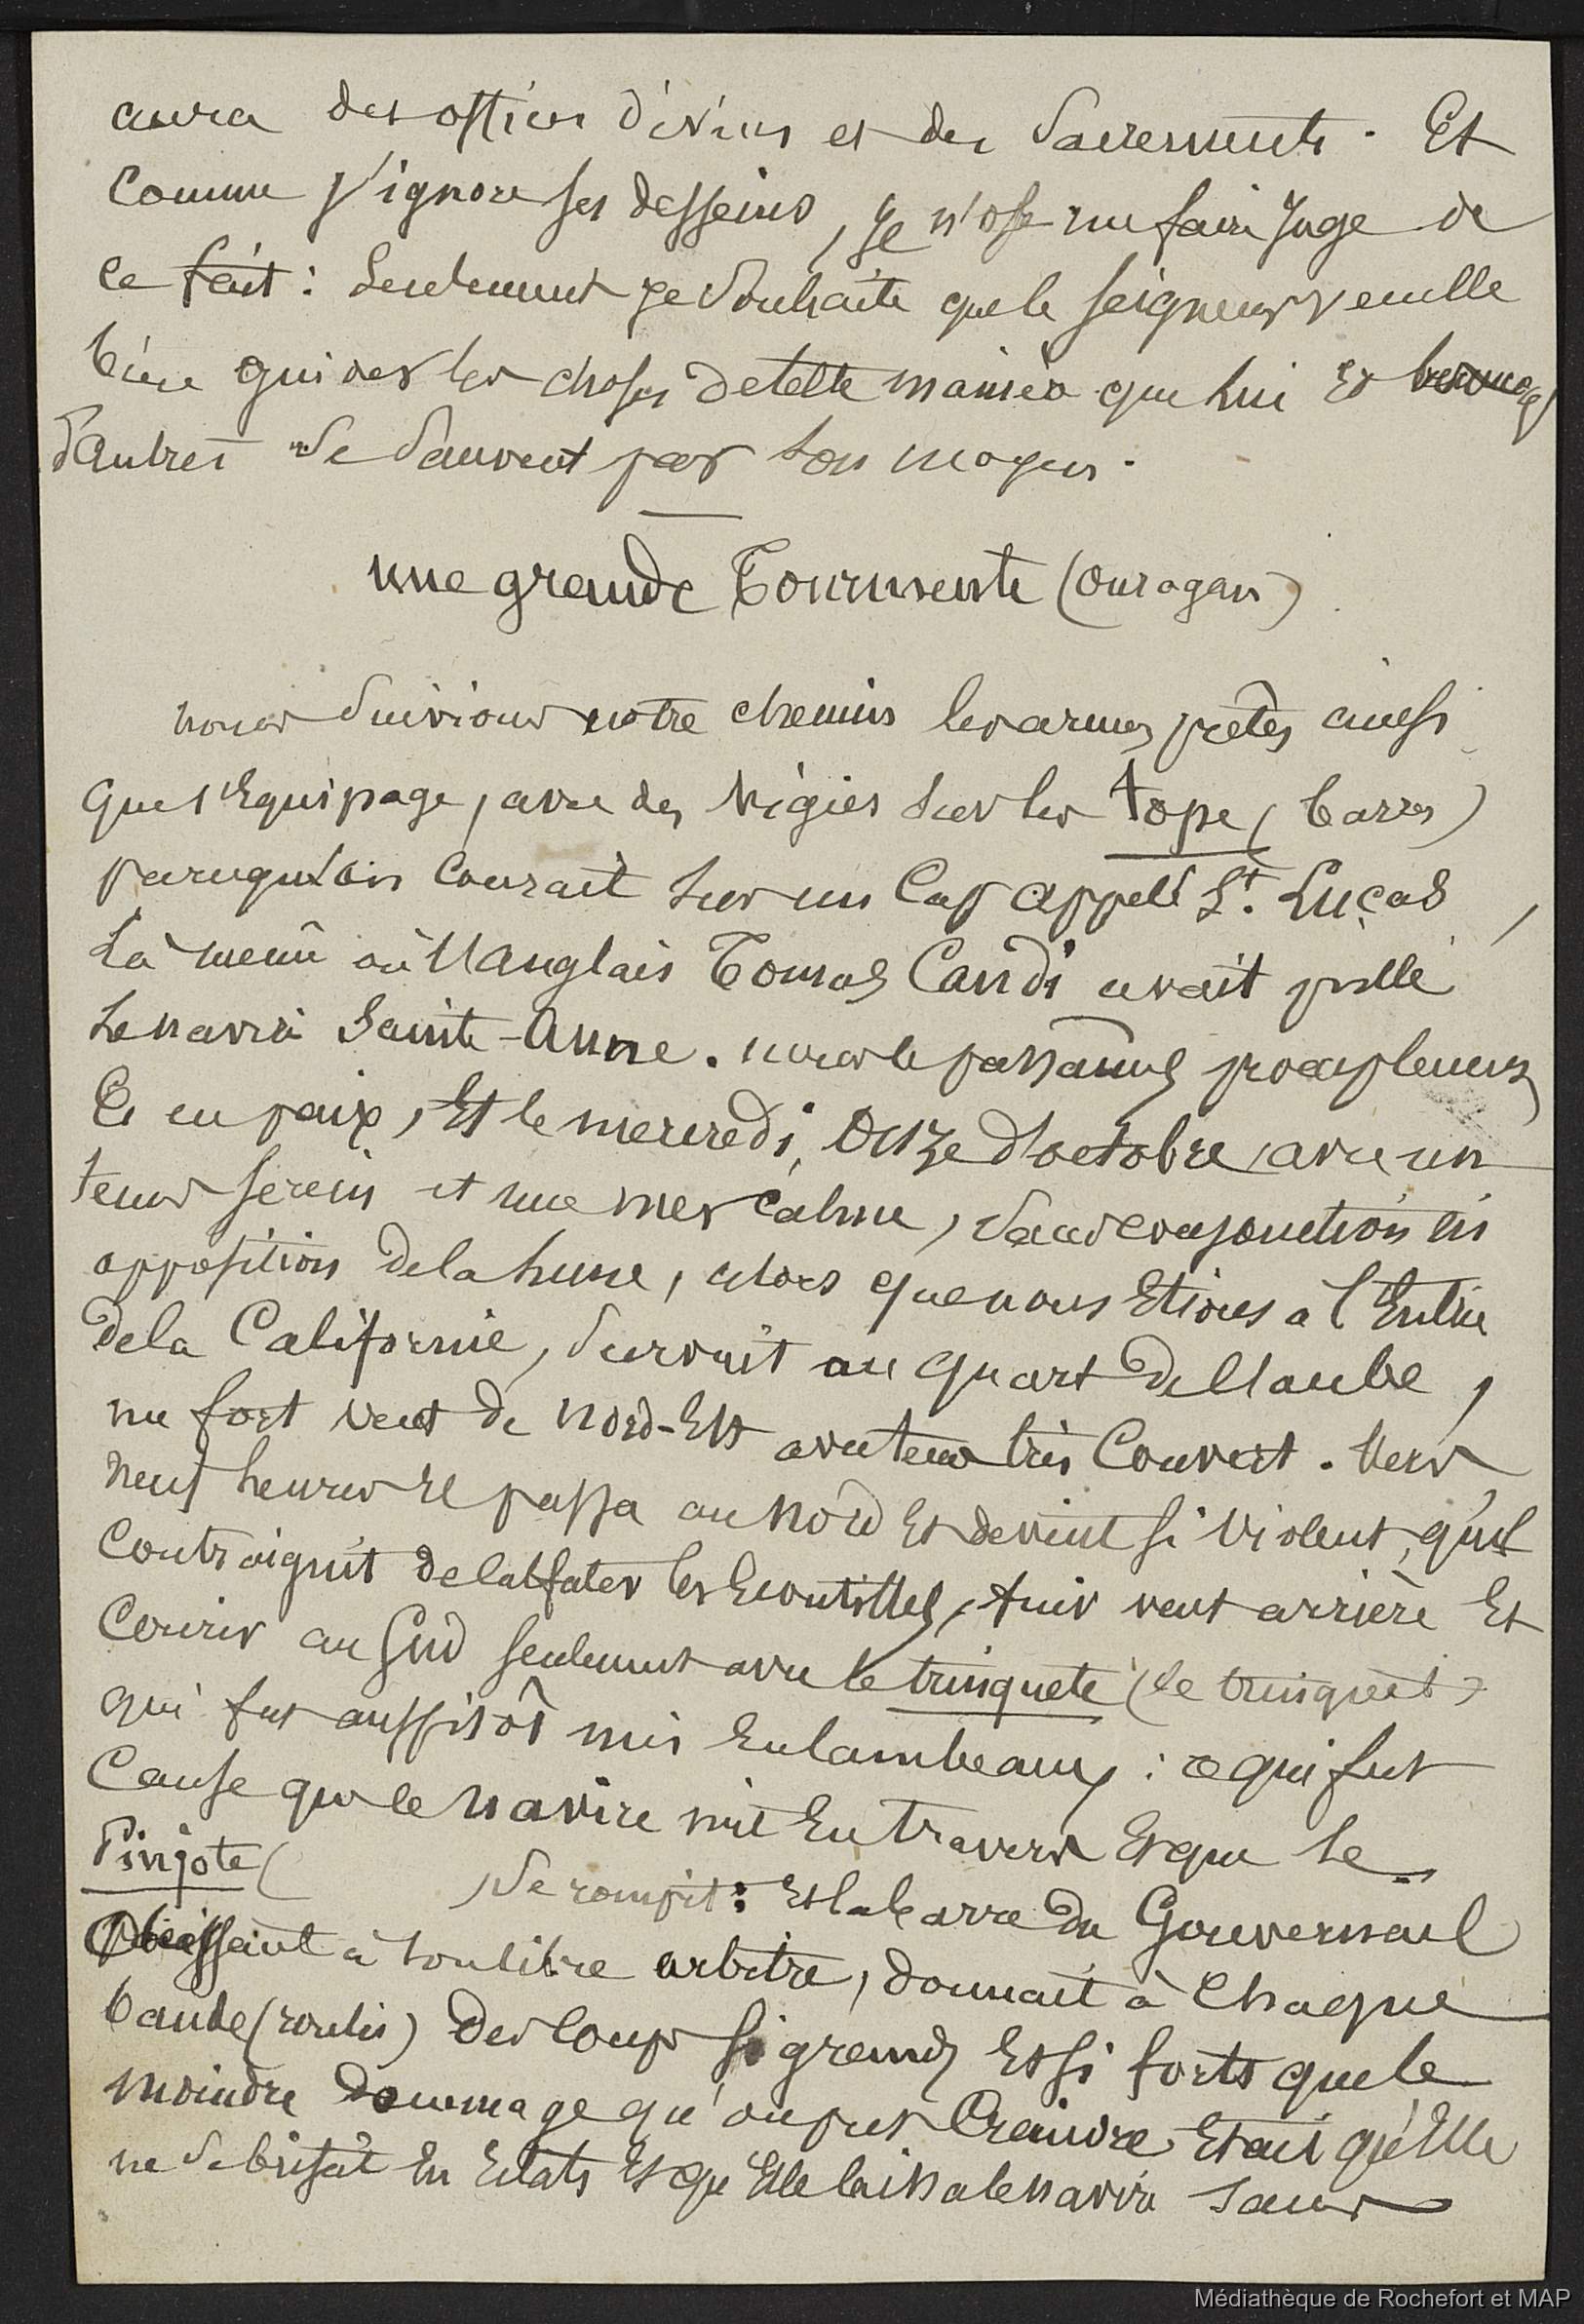 aura des offices divins et des Sacrements. Et
Comme J'ignore ses desseins, Je n'ose me faire Juge de
ce fait : Seulement je Souhaite que le seigneur veuille
bien guider les choses de telle manière que lui Et
d'autres Se Sauvent par son moyen.
une grande Tourmente (Ouragan)
nous Suivions notre chemin les armes prêtes ainsi
que l'Equipage, avec des vigies sur les tope (barres)
parcequ'on Courait sur un Cap appelé St. Lucas,
là même où l'anglais Tomas Candi avait pillé
le navire Sainte-Anne. nous le passâmes
Et en paix, Et le mercredi, Onze d'octobre, avec un
tems serein et une mer Calme, Sans conjonction ni
opposition de la lune, alors que nous Etions à l'Entrée
de la Californie, Survint au quart de l'aube,
un fort vent de Nord-Est avec tems très Couvert. Vers
neuf heures Il passa au Nord Et devint si violent, qu'il
Contraignit de calfater les Ecoutilles, fuir vent arrière Et
Courir au Sud seulement avec le trinquete (le trinquet)
qui fut aussitôt mis En lambeaux : ce qui fut
Cause que le navire mit En travers Et que le
Pinjote ( ) Se rompit : Et la barre du Gouvernail
Obéissant à son libre arbitre, donnait à Chaque
bande (roulis) des coups si grands Et si forts que le
moindre dommage qu'on put Craindre Etait qu'Elle
ne Se brisât En Eclats Et qu'Elle laissa le navire sans
Médiathèque de Rochefort et MAP